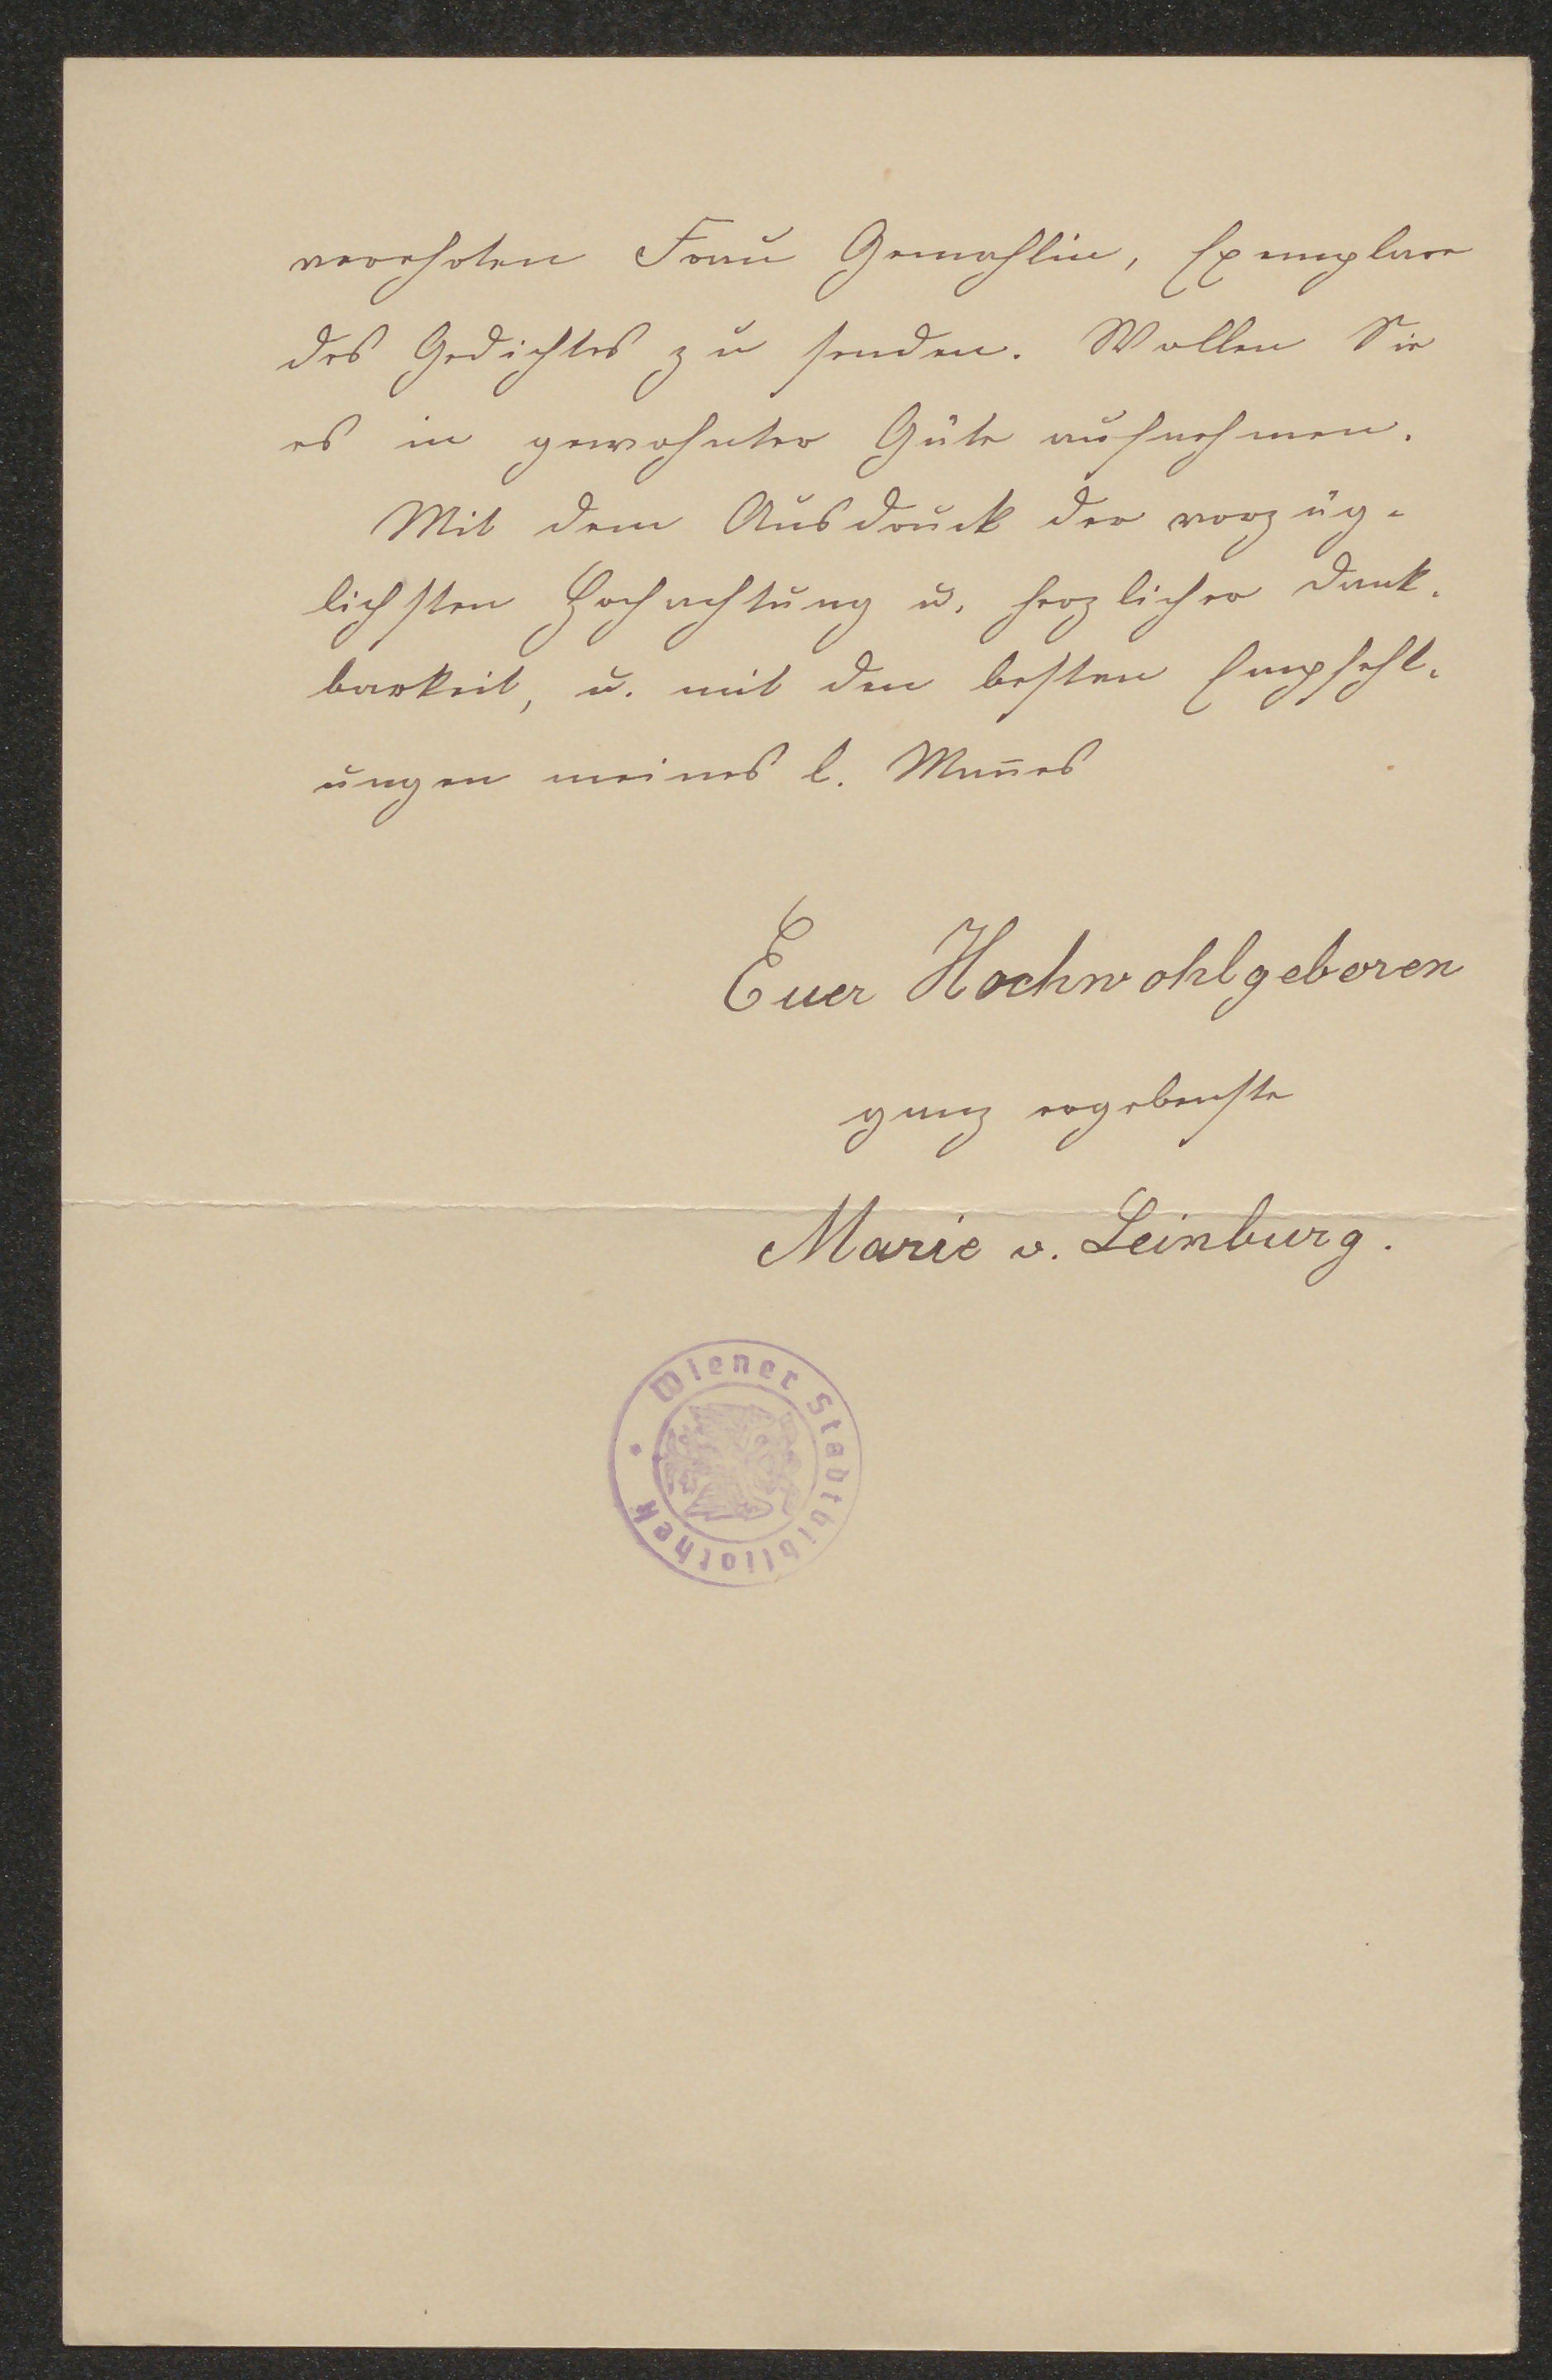 verehrten Frau Gemahlin, Exemplare
des Gedichtes zu senden. Wollen Sie
es in gewohnter Güte aufnehmen.
Mit dem Ausdruck der vorzüg-
lichsten Hochachtung u. herzlicher Dank-
barkeit, u. mit den besten Empfehl-
ungen meines l. Man̄es
Euer Hochwohlgeboren
ganz ergebenste
Marie v. Leinburg.
Wiener Stadtbibliothek